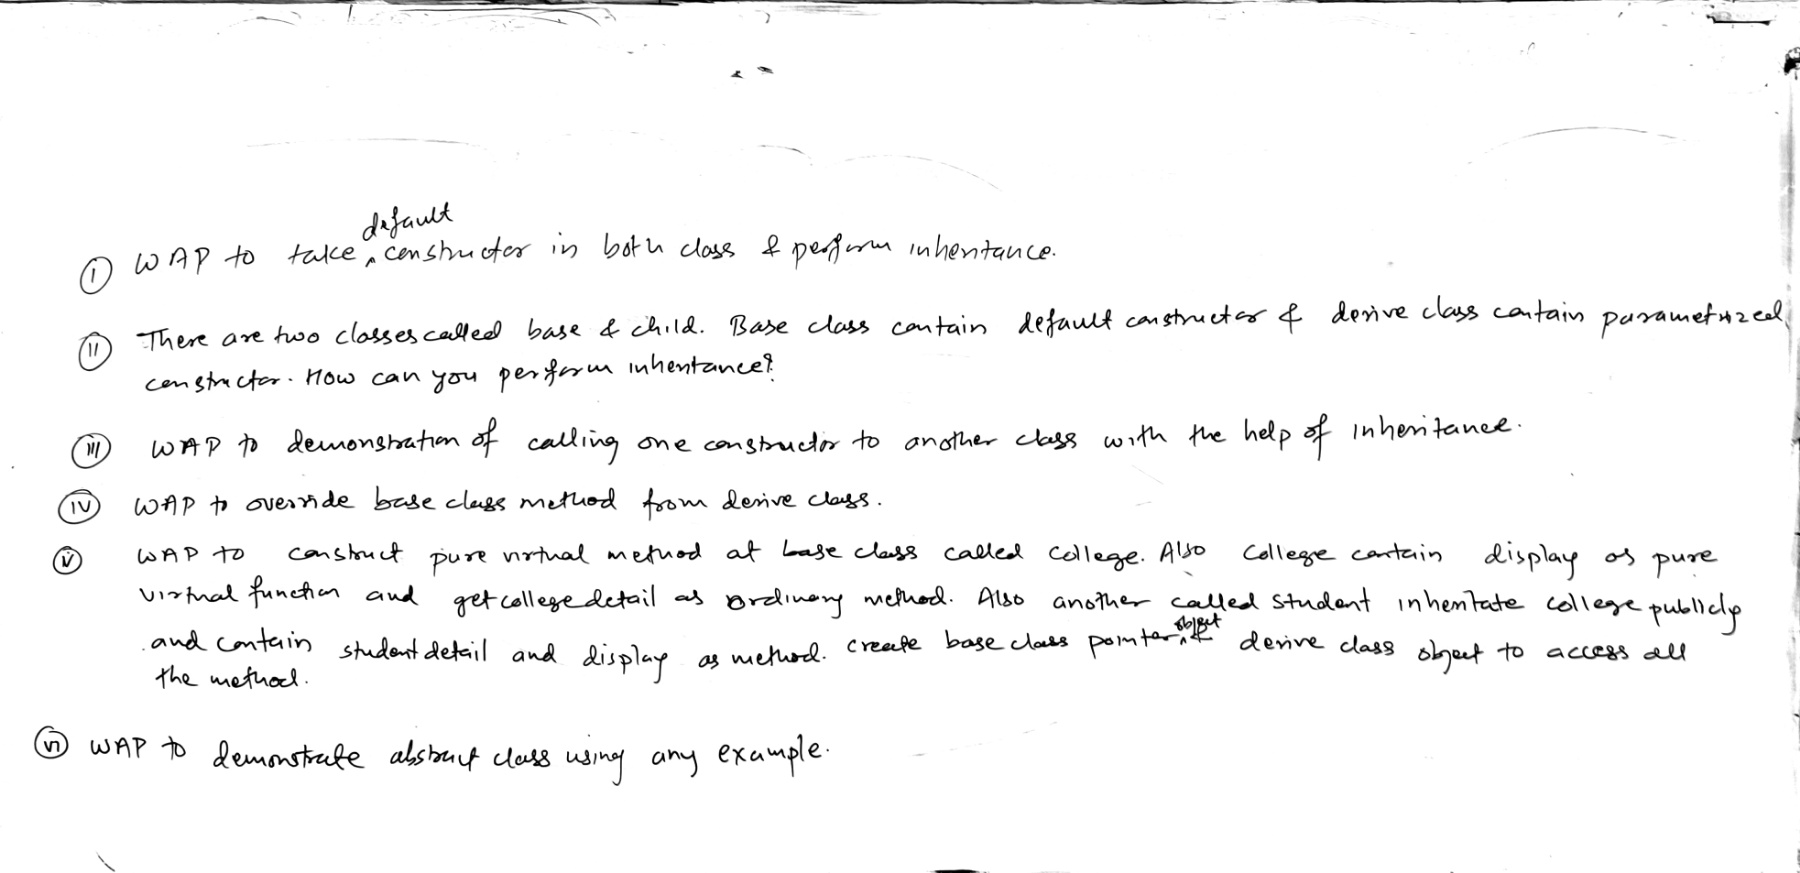 (i) WAP to take default constructor in both class & perform inheritance.
(ii) There are two classes called base & child. Base class contain default constructor & derive class contain parametrized
constructor. How can you perform inheritance?
(iii) WAP to demonstration of calling one constructor to another class with the help of inheritance.
(iv) WAP to override base class method from derive class.
(v) WAP to construct pure virtual method at base class called College. Also College contain display as pure
virtual function and getcollegedetail as ordinary method. Also another called student inheritate college publicly
and contain studentdetail and display as method. Create base class pointer object & derive class object to access all
the method.
(vi) WAP to demonstrate abstract class using any example.